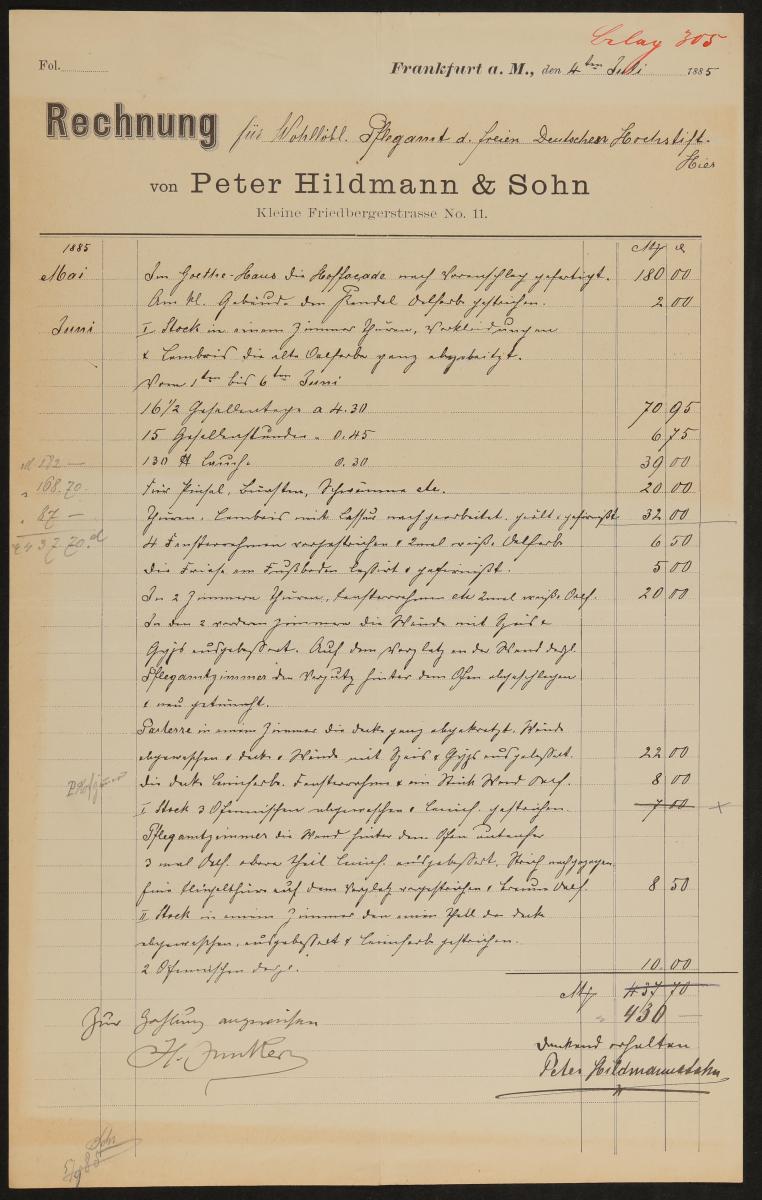 Belag 305
Fol.
Frankfurt a. M., den 4ten Juli 1885
Rechnung für Wohllöbl. Pflegamt d. freien Deutschen Hochstift.
Hier
von Peter Hildmann & Sohn
Kleine Friedbergerstrasse No. 11.
1885
Mai Im Goethe-Haus die Hoffacade nach Voranschlag gefertigt. 180 00
Am kl. Gebäude den Oelfarb gestrichen. 2 00
Juni I Stock in einem Zimmer Thüren, Verkleidungen
& Lambris die alte Oelfarbe ganz abgebeitzt.
Vom 1ten bis 6ten Juni
16 1/2 Gesellentage a 4.30 70 95
15 Gesellenstunden " 0.45 6 75
130 ℔ Lauge 0.30 39 00
Für Pinsel, Bürsten, Schwämme etc. 20 00
Thüren, Lambris mit Lassur nachgearbeitet, geölt & gefirnißt 32 00
4 Fensterrahmen vorgestrichen & 2mal weiß. Oelfarb 6 50
die Friese am Fußboden lassirt & gefirnißt. 5 00
In 2 Zimmern Thüren, Fensterrahmen etc 2mal weiß. Oelf. 20 00
In den 2 vorderen Zimmern die Wände mit Speis &
Gyps ausgebessert. Auf dem Vorplatz an der Wand desgl.
Pflegamtzimmer den Verputz hinter dem Ofen abgeschlagen
& neu getüncht.
Parterre in einem Zimmer die Decke ganz abgekratzt, Wände
abgewaschen & Decke & Wände mit Speis & Gyps ausgebessert. 22 00
die Decke Leimfarbe. Fensterrahme & ein Stück Wand Oelf. 8 00
I Stock 3 Ofennischen abgewaschen & Leimf. gestrichen. 7 00 x
Pflegamtzimmer die Wand hinter dem Ofen
3 mal Oelf. obere Theil Leimf. ausgebessert, Strich nachgezogen
Eine Flügelthüre auf dem Vorplatz vorgestrichen & braune Oelf. 8 50
II Stock in einem Zimmer den einen Theil der Decke
abgewaschen, ausgebessert & Leimfarb gestrichen.
2 Ofennischen desgl. 10 00
182 —
" 168.70
" 87 —
437.70
437 70
" 430 —
Zur Zahlung angewiesen
H. Junker
dankend erhalten
Peter Hildmann & Sohn